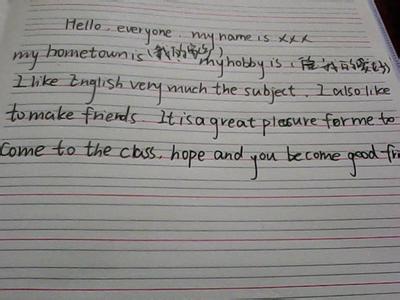 Hello, everyone, my name is xxx
my hometown is (我的家乡) my hobby is (我的爱好)
I like English very much the subject. I also like
to make friends. It is a great plesure for me to
come to the class, hope and you become good fri